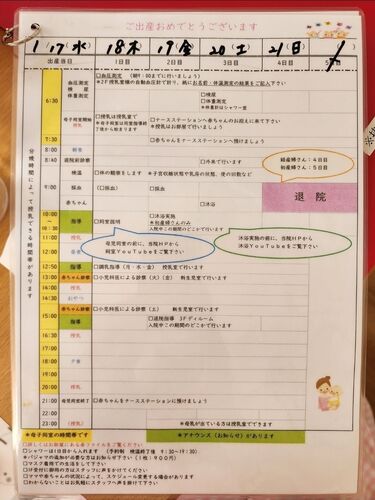 ご出産おめでとうございます
1/17(水) 18(木) 19(金) 20(土) 21(日) /
出産当日 1日目 2日目 3日目 4日目 5日目
6:30 血圧測定 検尿 体重測定
□血圧測定 (朝9:00までに行いましょう)
*2F授乳室横の自動血圧計で計り、紙にお名前・体温測定の結果をご記入下さい
□検尿
□体重測定
*体重計はシャワー室
母子同室開始 授乳
□授乳は授乳室で
*母子同室は同室指導終了後から始まります
□ナースステーションへ赤ちゃんのお迎えに来て下さい
*授乳はお部屋で行いましょう
7:30 □赤ちゃんをナースステーションへ預けましょう
8:00 朝食
8:40 退院前診察 □外来で行います
検温 □体の観察をします *子宮収縮状態や乳房の状態、便の回数など
9:00 採血 □(採血) □(採血)
経産婦さん：4日目
初産婦さん：5日目
退院
赤ちゃん □沐浴
10:00 ～ 10:30 指導 □同室指導 □沐浴実施
*初産婦さんのみ
入院中この期間のどこかで行います
11:00 授乳
12:00 昼食
母児同室の前に、当院HPから
同室YouTubeをご覧下さい
沐浴実施の前に、当院HPから
沐浴YouTubeをご覧下さい
12:50 指導 □調乳指導(月・水・金) 授乳室で行います
13:00 赤ちゃん診察 □小児科医による診察(火)(金) 新生児室で行います
14:00 授乳
おやつ
15:00 赤ちゃん診察 □小児科医による診察(木) 新生児室で行います
指導 □退院指導 3Fデイルーム
入院中この期間のどこかで行います
授乳
18:00 夕食
授乳
21:00 母児同室終了 □赤ちゃんをナースステーションに預けましょう
22:00
23:00 授乳 *母乳が出ている方は授乳室でできます
分娩時間によって授乳できる時間帯があります
*母子同室の時間帯です *アナウンス(お知らせ)があります
□詳しくはお部屋にある赤ファイルをご覧ください
□シャワーは1日目から入れます (予約制 検温終了後 9:30～19:30)
□パジャマの追加が必要な方はお知らせ下さい(1枚：900円)
□マスク着用での生活をして下さい
□F受付に御用の方はスタッフに声をかけてください
□ママや赤ちゃんの状態によって、スケジュール変更する場合があります
□わからないことはお気軽にスタッフへ声を掛けて下さい